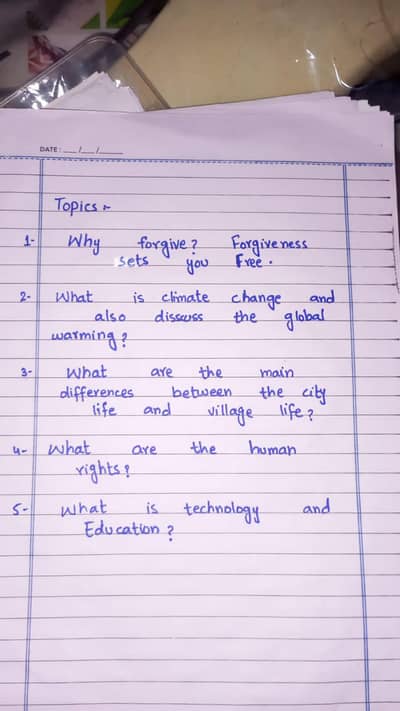 DATE: __/__/____
Topics :-
1- Why forgive? Forgiveness
sets you Free.
2- What is climate change and
also disscuss the global
warming?
3- What are the main
differences between the city
life and village life?
4- What are the human
rights?
5- What is technology and
Education?